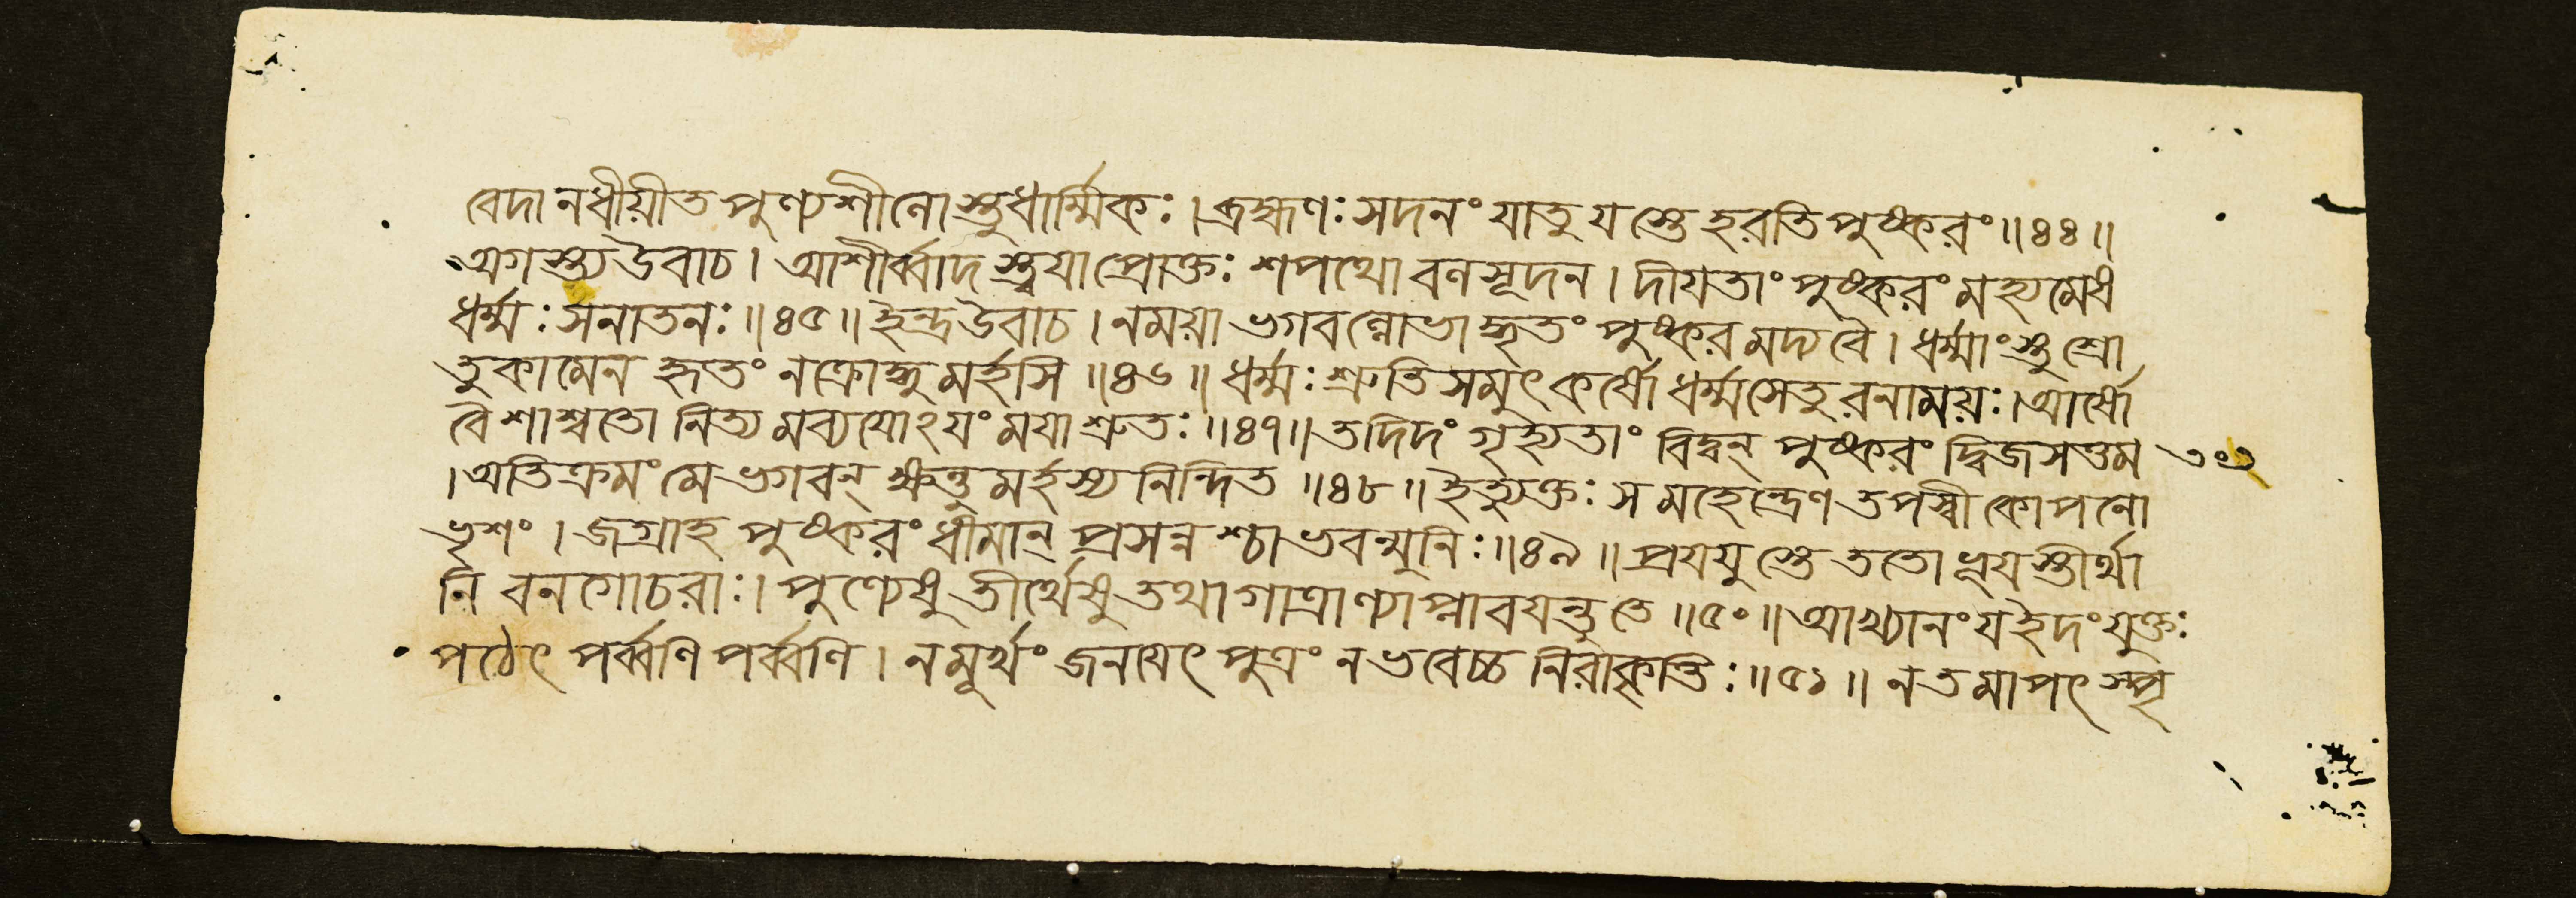 বেদানধীয়ীত পুণ্যশীলোস্তুধার্ম্মিকঃ। ব্রহ্মণঃ সদনং যাতু যস্তে হরতি পুষ্করং॥৪৪॥
অগস্ত্য উবাচ। আশীর্ব্বাদস্ত্বয়া প্রোক্তঃ শপথো বলসূদন। দীয়তাং পুষ্করং মহ্যমেষ
ধর্ম্মঃ সনাতনঃ॥৪৫॥ ইন্দ্র উবাচ। ন ময়া ভগবন্লোভাদ্ধৃতং পুষ্করমদ্য বৈ। ধর্ম্মাংস্তু শ্রো
তুকামেন হৃতং ন ক্রোদ্ধুমর্হসি॥৪৬॥ ধর্ম্মঃ শ্রুতিসমুৎকর্ষো ধর্ম্মসেতুরনাময়ঃ। আর্ষো
বৈ শাশ্বতো নিত্যমব্যয়োঽয়ং ময়া শ্রুতঃ॥৪৭॥ তদিদং গৃহ্যতাং বিদ্বন্ পুষ্করং দ্বিজসত্তম ৩০২
। অতিক্রমং মে ভগবন্ ক্ষন্তুমর্হস্যনিন্দিত॥৪৮॥ ইত্যুক্তঃ স মহেন্দ্রেণ তপস্বী কোপনো
ভৃশং। জগ্রাহ পুষ্করং ধীমান্ প্রসন্নশ্চাভবন্মুনিঃ॥৪৯॥ প্রযযুস্তে ততো ভূয়স্তীর্থা
নি বনগোচরাঃ। পুণ্যেষু তীর্থেষু তথা গাত্রাণ্যাপ্লাবয়ন্তু তে॥৫০॥ আখ্যানং য ইদং যুক্তঃ
পঠেৎ পর্ব্বণি পর্ব্বণি। ন মূর্খং জনয়েৎ পুত্রং ন ভবেচ্চ নিরাকৃতিঃ॥৫১॥ ন তমাপৎ স্পৃ